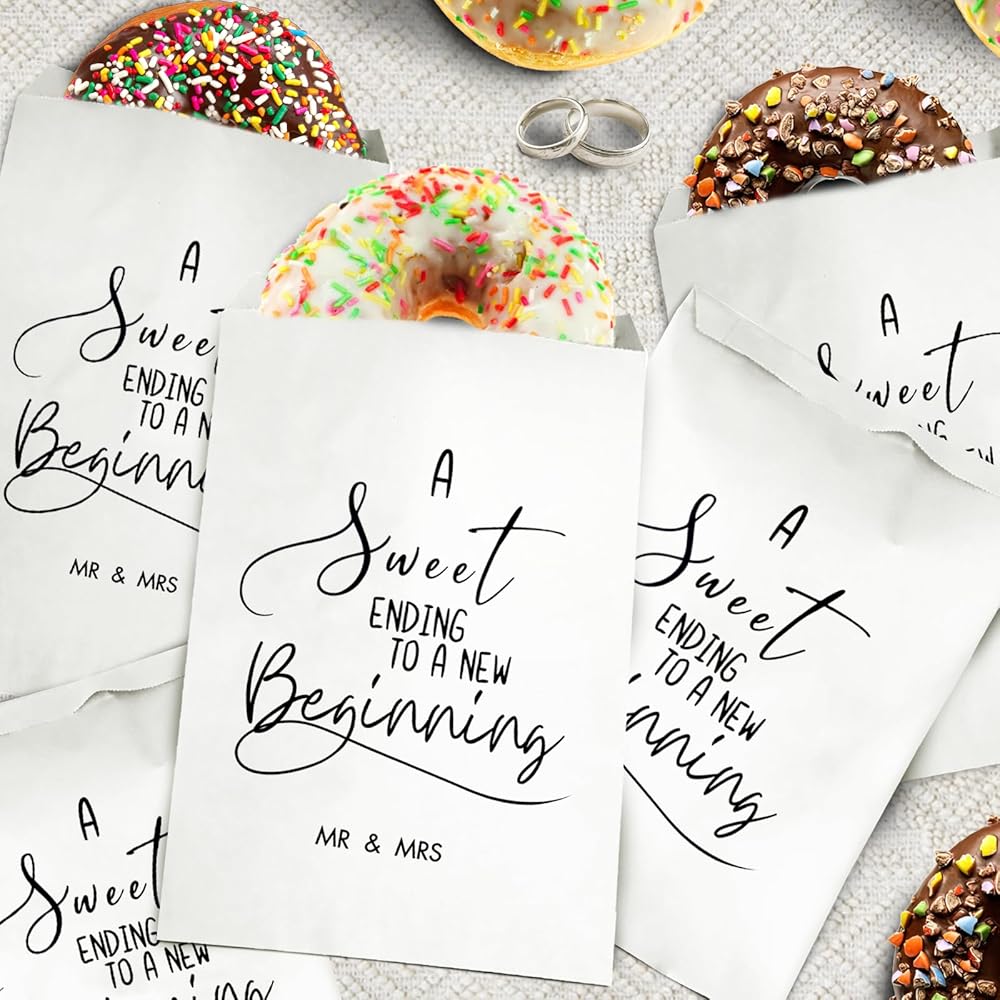 A
Sweet
ENDING
TO A NEW
Beginning
MR & MRS
A
Swee
ENDING
TO A N
Beginni
MR & MRS
A
Sweet
ENDING
TO A NEW
inning
A
Sweet
A
Sweet
ENDING
TO A NEW